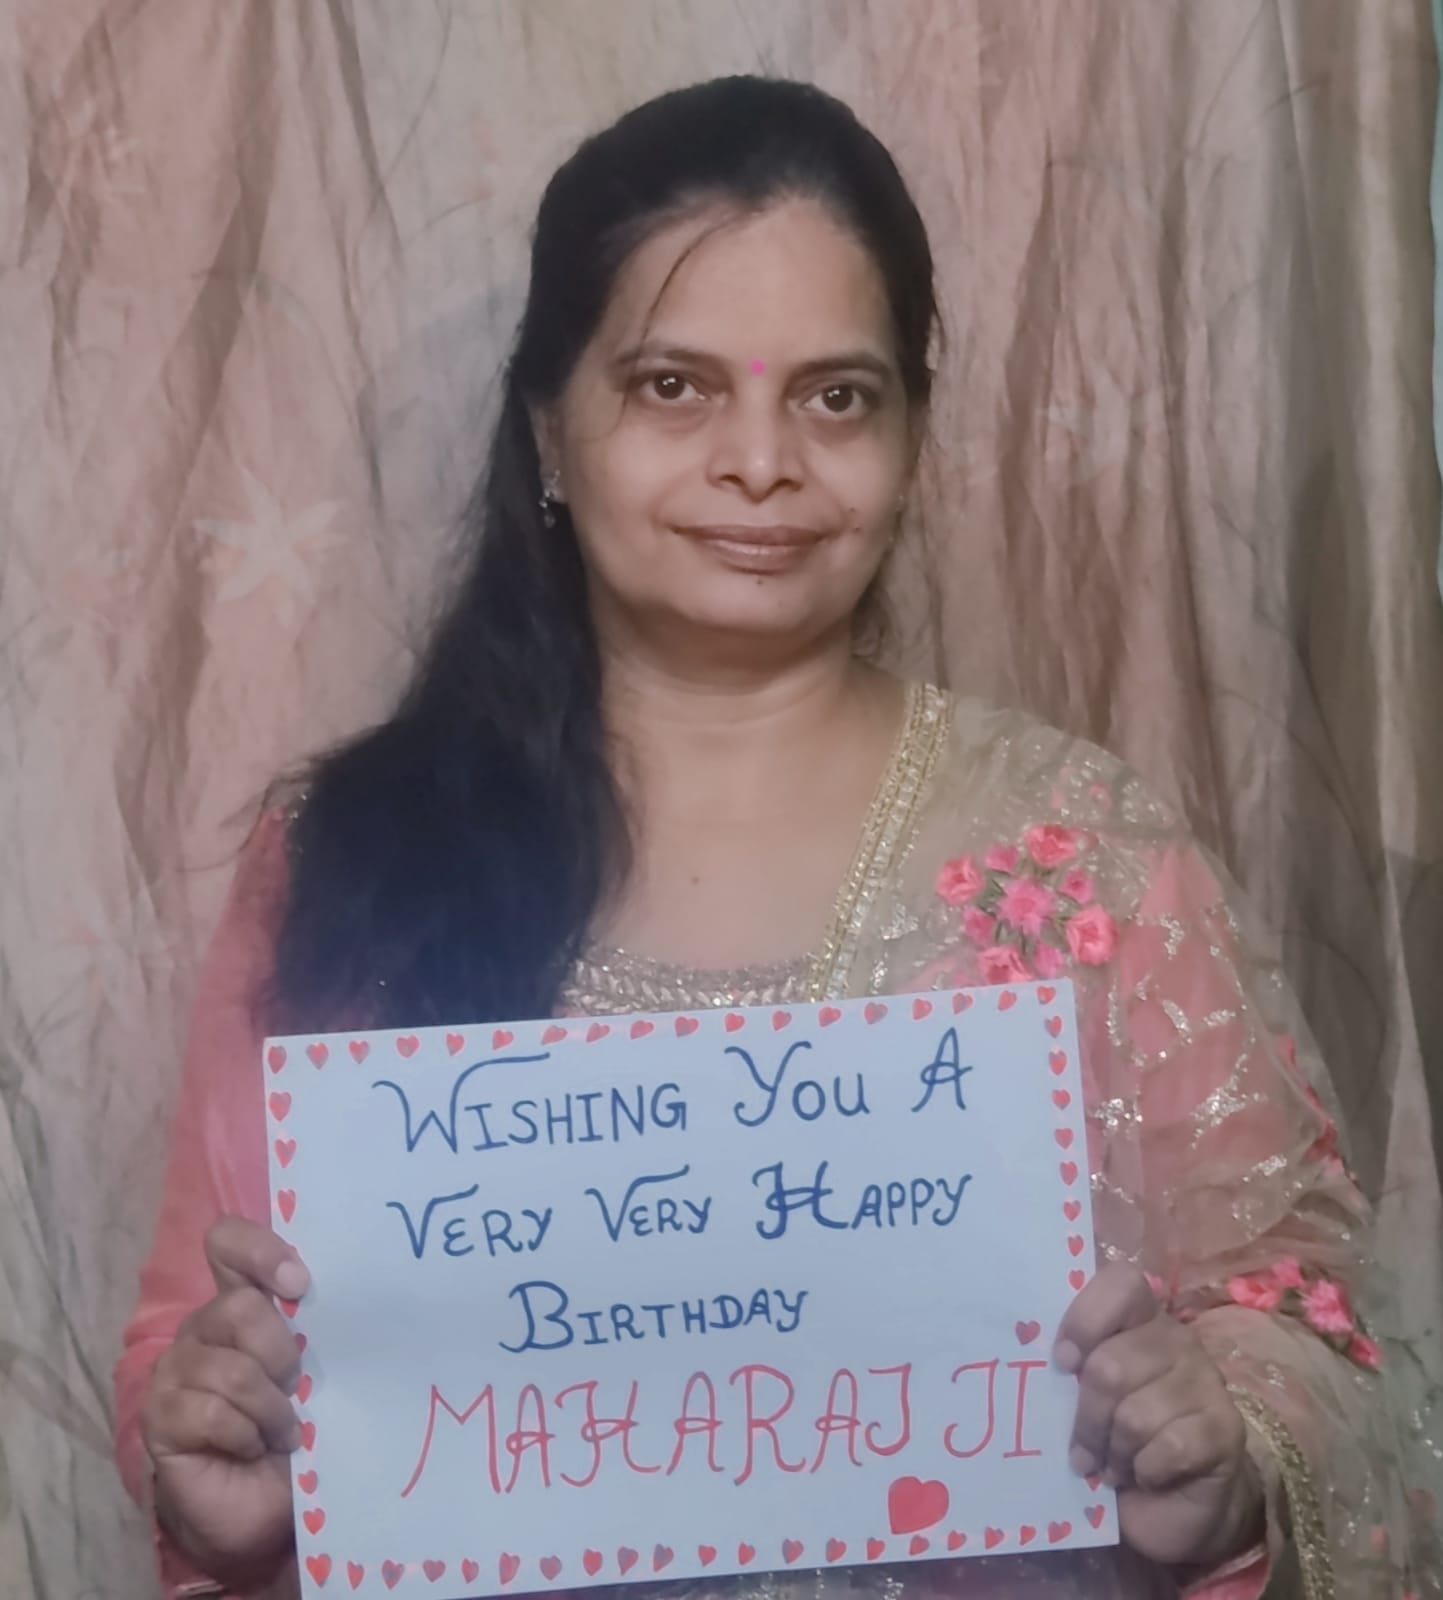 WISHING YOU A
VERY VERY HAPPY
BIRTHDAY
MAHARAJ JI